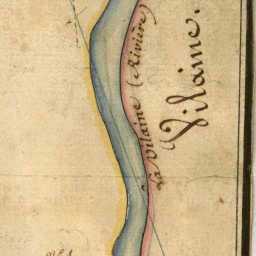 la Vilaine (Rivière)
Vilaine.